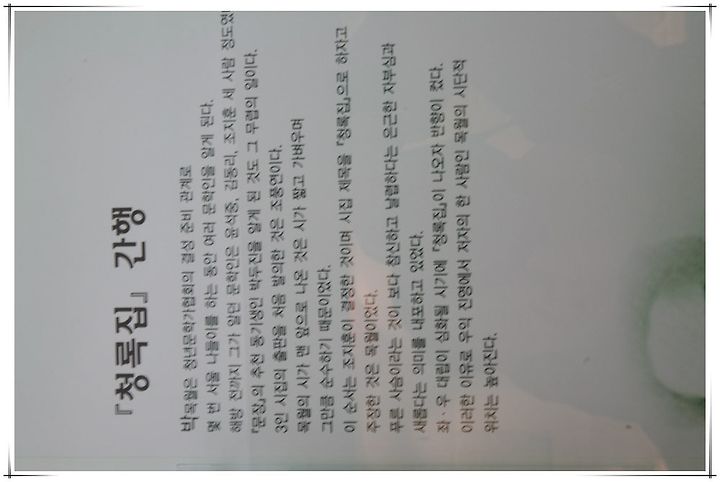 『청록집』 간행
박목월은 청년문학가협회의 결성 준비 관계로
몇 번 서울 나들이를 하는 동안 여러 문학인을 알게 된다.
해방 전까지 그가 알던 문학인은 윤석중, 김동리, 조지훈 세 사람 정도였
『문장』의 추천 동기생인 박두진을 알게 된 것도 그 무렵의 일이다.
3인 시집의 출판을 처음 발의한 것은 조풍연이다.
목월의 시가 맨 앞으로 나온 것은 시가 짧고 가벼우며
그만큼 순수하기 때문이었다.
이 순서는 조지훈이 결정한 것이며 시집 제목을 『청록집』으로 하자고
주장한 것은 목월이었다.
푸른 사슴이라는 것이 보다 참신하고 날렵하다는 은근한 자부심과
새롭다는 의미를 내포하고 있었다.
좌·우 대립이 심화될 시기에 『청록집』이 나오자 반향이 컸다.
이러한 이유로 우익 진영에서 저자의 한 사람인 목월의 시단적
위치는 높아진다.